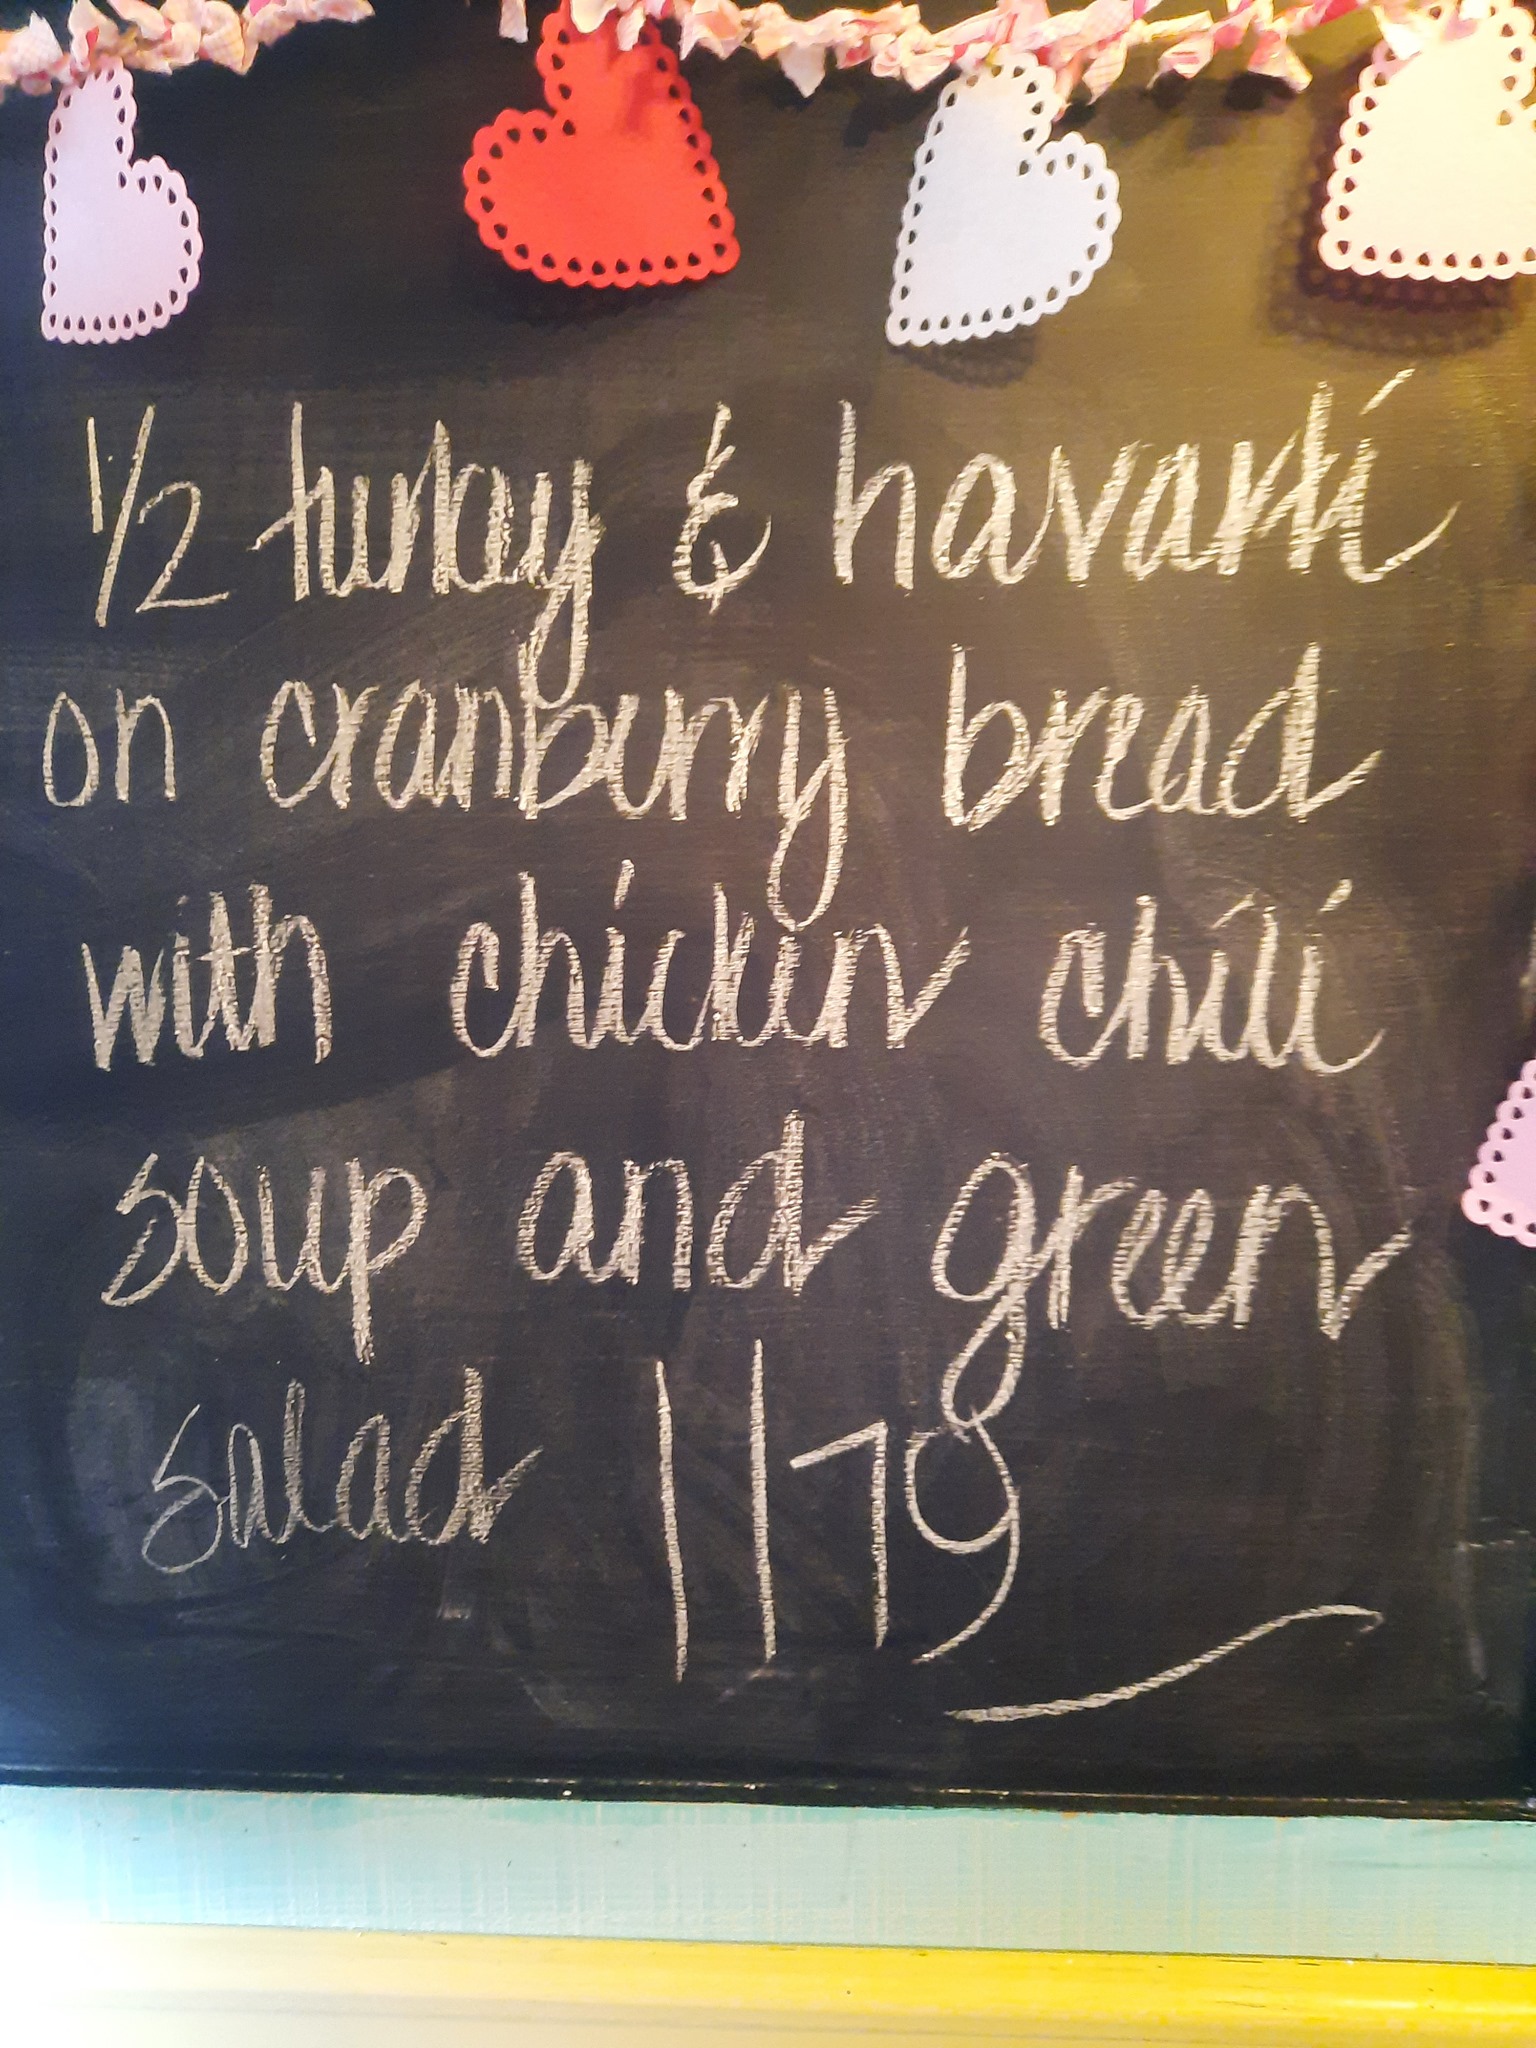 1/2 turkey & havarti
on cranberry bread
with chicken chili
soup and green
salad 1179